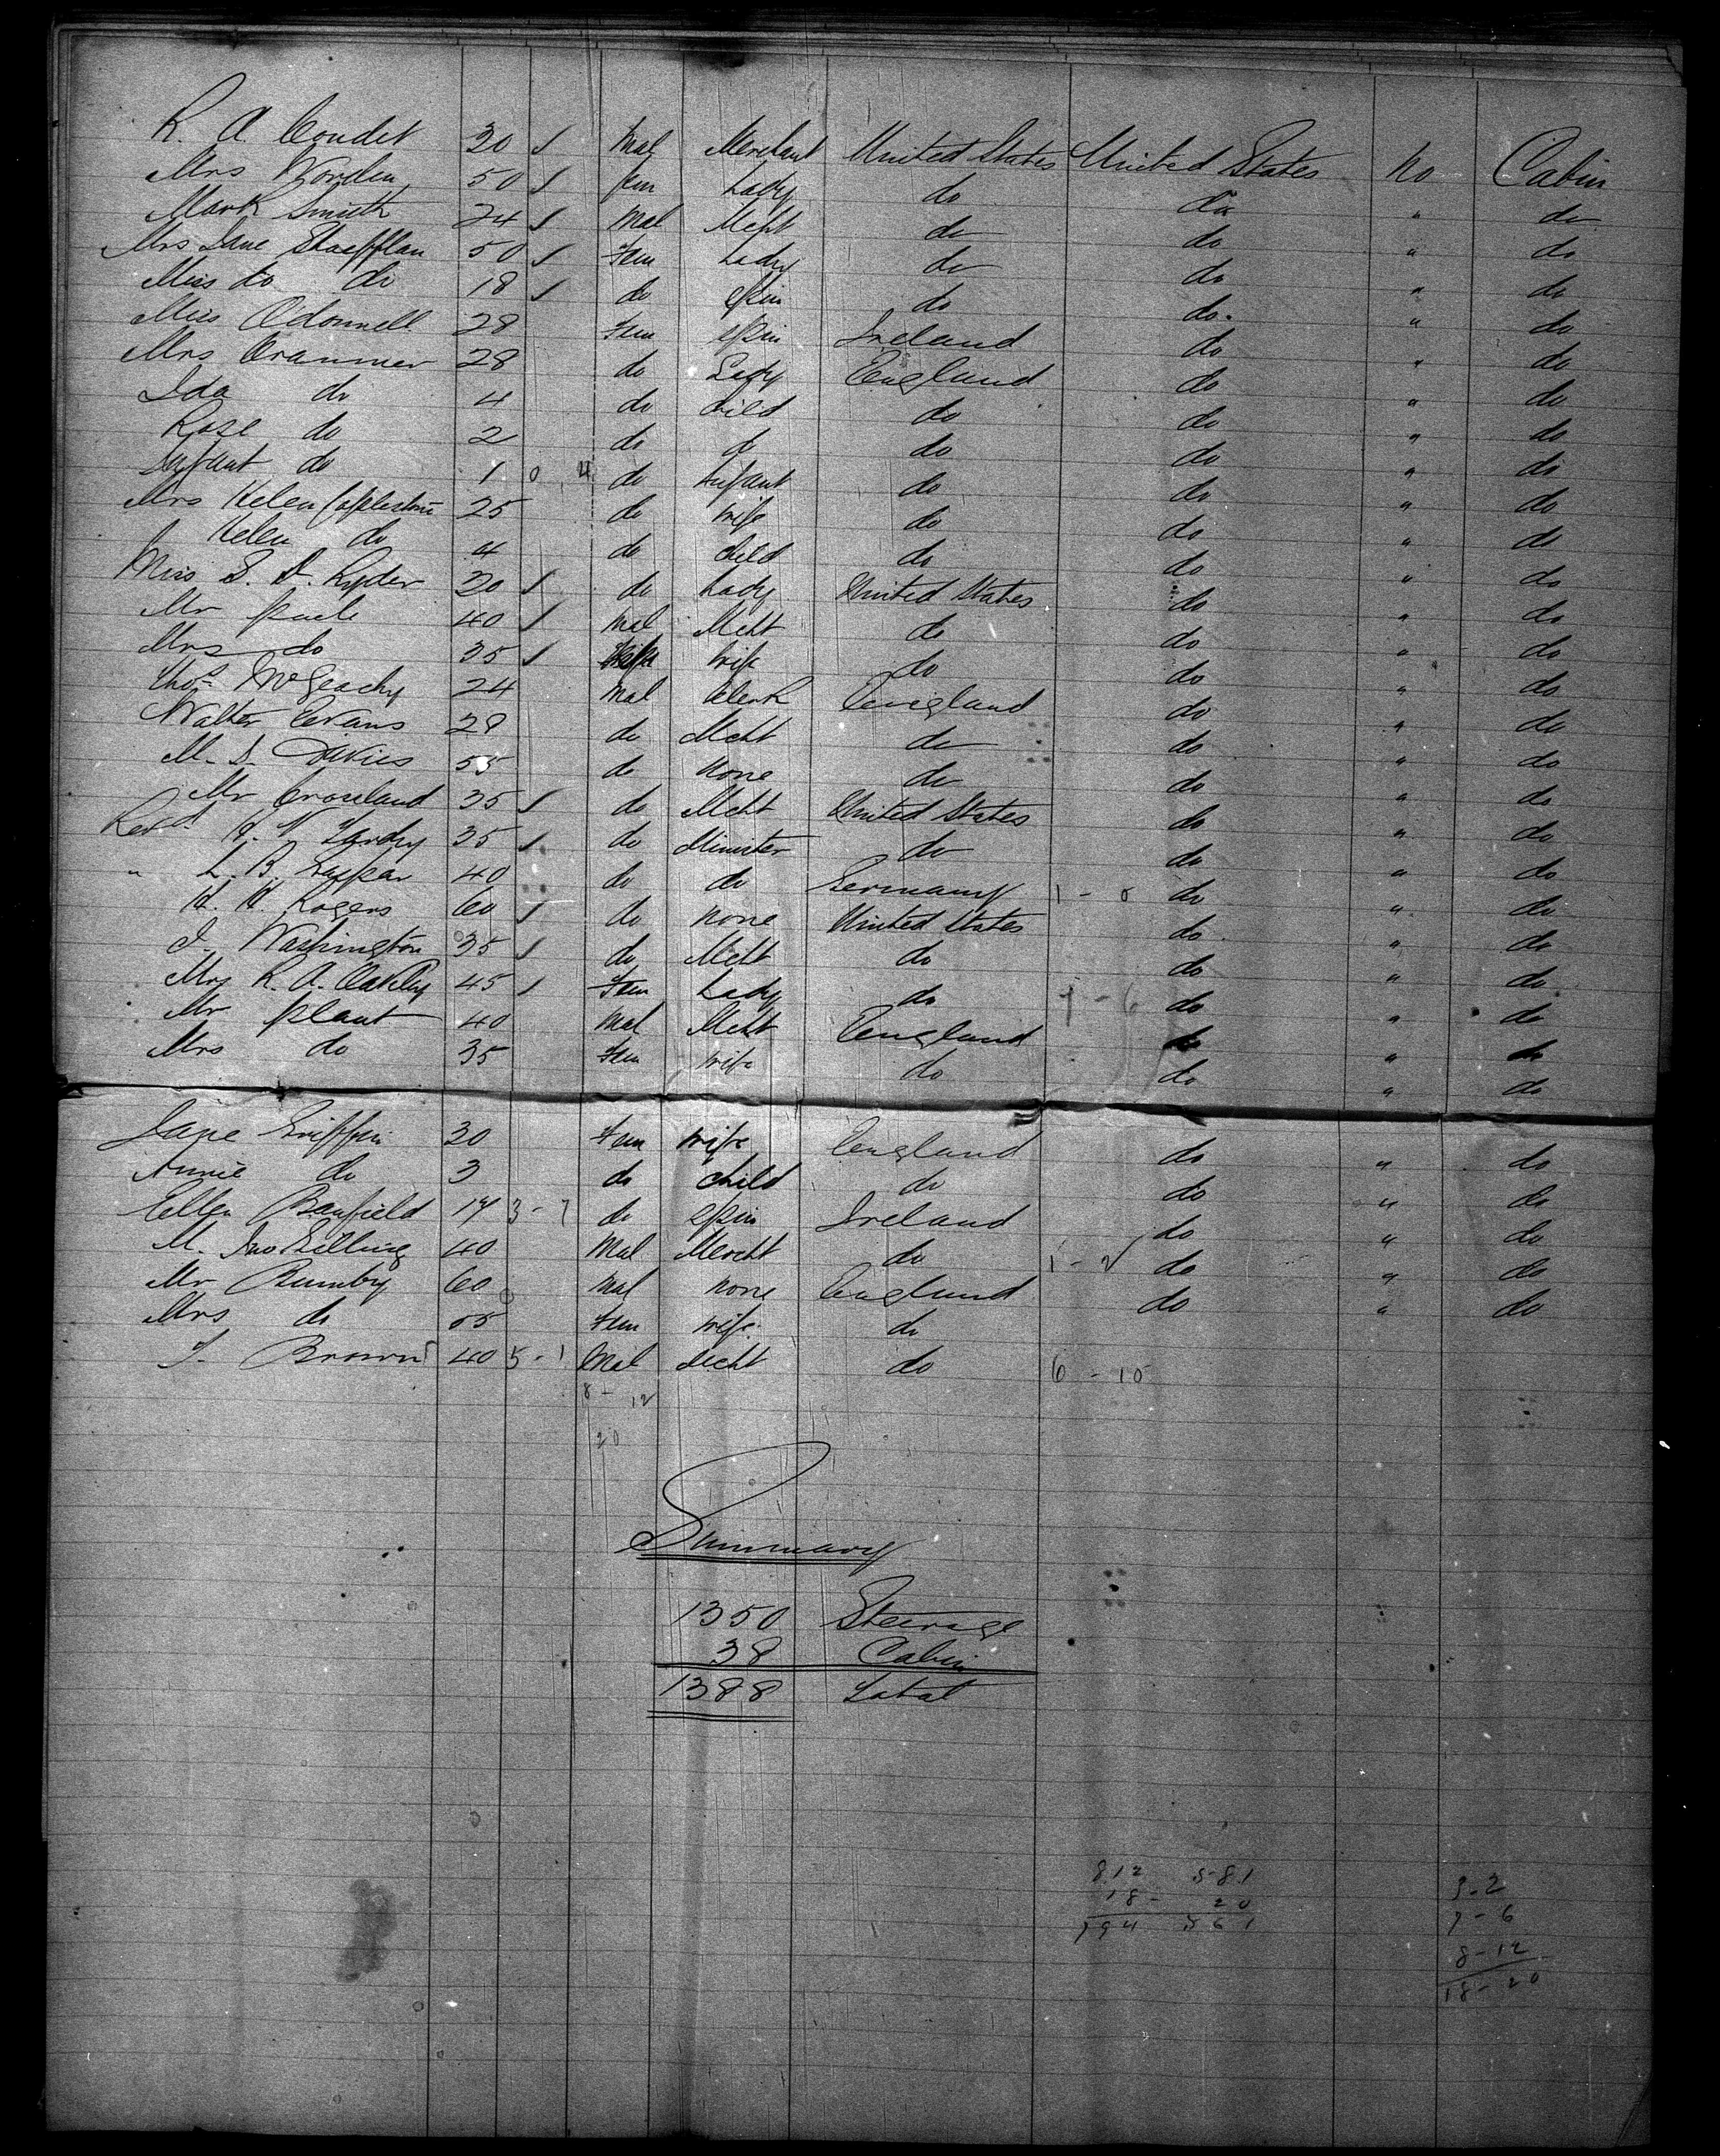 R. A. Condit 30 ✓ Mal Merchant United States United States No Cabin
Mrs Worden 50 ✓ fem Lady do do " do
Mark Smith 24 ✓ Mal Mcht do do " do
Mrs Jane 50 ✓ Fem Lady do do " do
Miss do do 18 ✓ do Spin do do " do
Miss O'donnell 28 Fem Spin Ireland do " do
Mrs Cranmer 28 do Lady England do " do
Ida do 4 do child do do " do
Rose do 2 do do do do " do
Infant do 1 0 4 do Infant do do " do
Mrs Helen Copplestone 25 do wife do do " do
Helen do 4 do child do do " do
Miss S. D. Ryder 30 ✓ do Lady United States do " do
Mr 40 ✓ Mal Mcht do do " do
Mrs do 35 ✓ wife do do " do
Thos McGeachy 24 Mal Clerk England do " do
Walter Evans 28 do Mcht do do " do
M. D. Davies 55 do none do do " do
Mr Crossland 35 ✓ do Mcht United States do " do
Revd H. N. 35 ✓ do Minister do do " do
" L. B. 40 do do Germany 1 - 0 do " do
H. H. Rogers 60 ✓ do none United States do " do
J. Washington 35 ✓ do Mcht do do " do
Mrs R. A. Oakley 45 ✓ Fem Lady do 7 - 6 do " do
Mr Plant 40 Mal Mcht England do " do
Mrs do 35 Fem wife do do " do
Jane Griffin 30 Fem wife England do " do
Annie do 3 do child do do " do
Ellen Banfield 17 3 - 7 do Spin Ireland do " do
M. Jno 40 Mal Mercht do 1 - 2 do " do
Mr Bumby 60 Mal none England do " do
Mrs do 55 Fem wife do
T. Brown 40 5 - 1 Mal Mcht do 6 - 10
8 - 12
20
Summary
1350 Steerage
38 Cabin
1388 Total
812 581
18 - 20
794 561
3 - 2
7 - 6
8 - 12
18 - 20